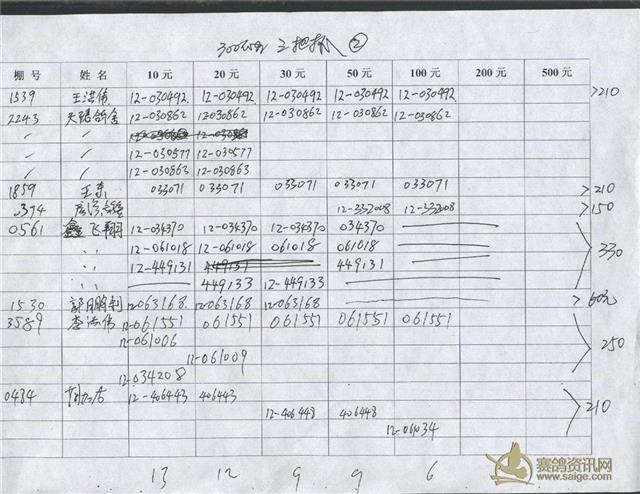 300公里 三把抓 ②
棚号 姓名 10元 20元 30元 50元 100元 200元 500元
1539 王洪伟 12-030492 12-030492 12-030492 12-030492 12-030492 >210
2243 天 鸽舍 12-030862 12030862 12-030862 12-030862 12-030862
〃 〃
〃 〃 12-030577 12-030577
〃 〃 12-030863 12-030863
1859 王东 033071 033071 033071 033071 033071 >210
0394 12-332008 12-332008 >150
0561 鑫飞翔 12-034370 12-034370 12-034370 034370
〃 12-061018 12-061018 061018 061018 330
〃 12-449131 449131 449131
〃 449133 12-449133
1530 郭月鹏利 12-063168 12-063168 12-063168 >60元
3589 李洪伟 12-061551 061551 061551 061551 061551
12-061006 250
12-061009
12-034208
0484 12-406443 406443 >210
12-406448 406448
12-061034
13 12 9 9 6
赛鸽资讯网
www.saige.com